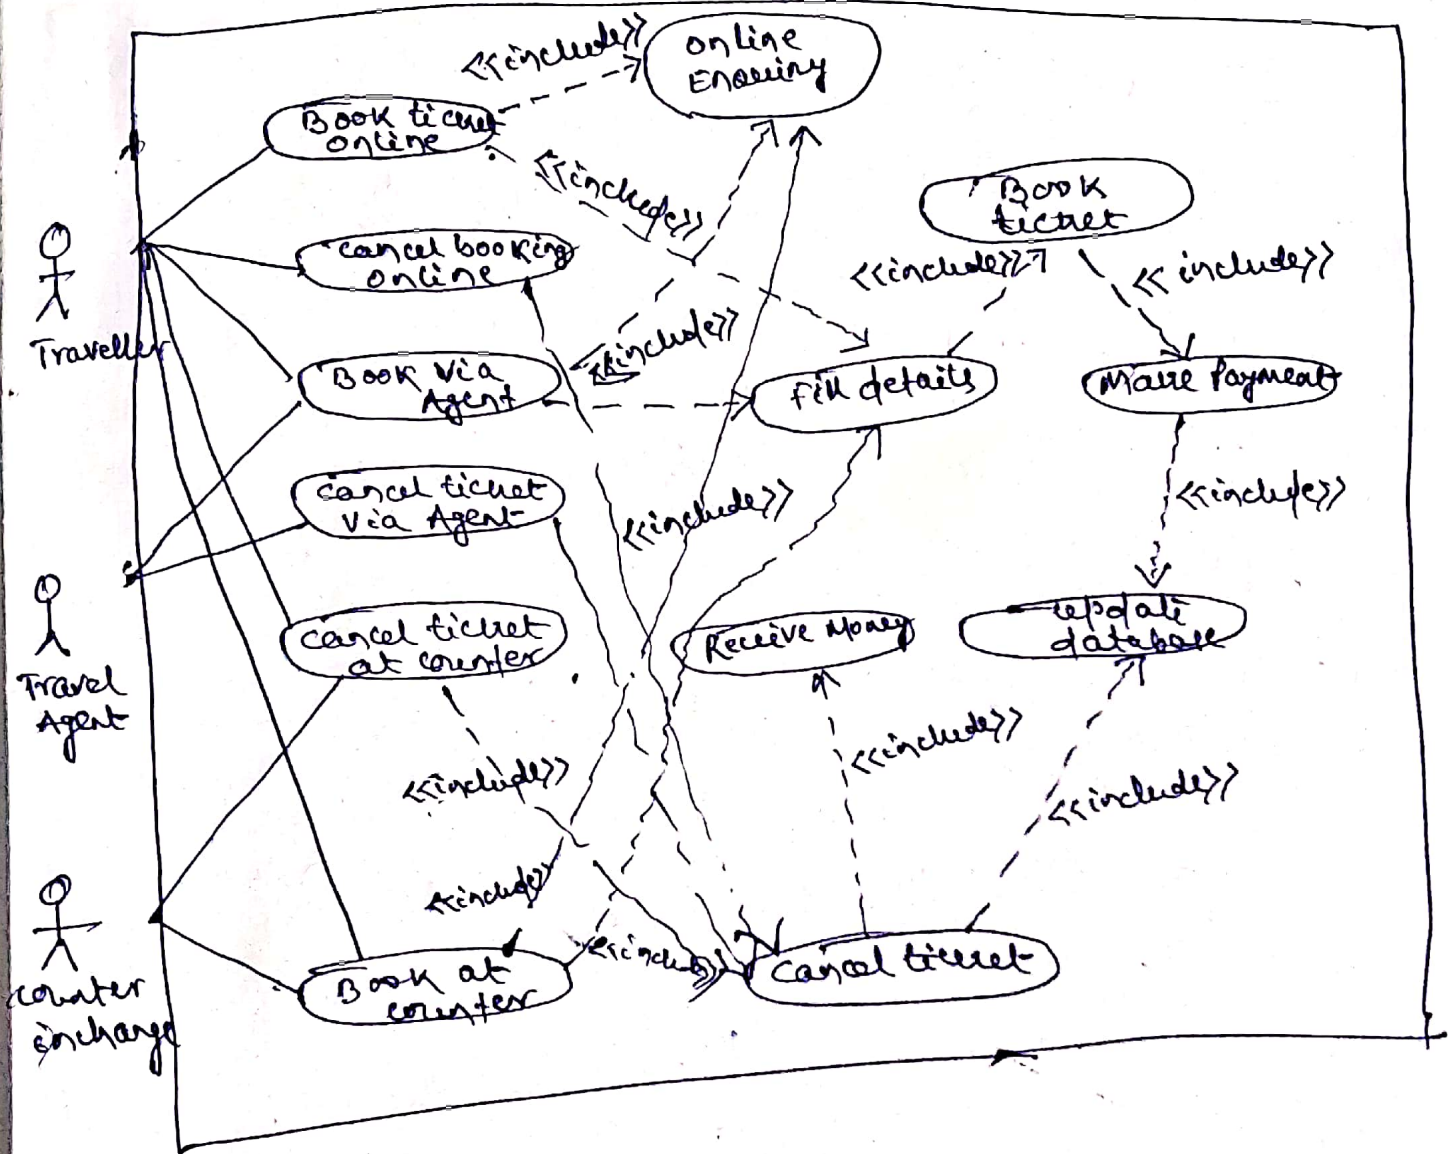 <<include>>
online
Enquiry
Book ticket
online
<<include>>
Book
ticket
cancel booking
online
<<include>>
<< include>>
Traveller
<<include>>
Book Via
Agent
Fill details
Make Payment
cancel ticket
Via Agent
<<include>>
<<include>>
Travel
Agent
cancel ticket
at counter
Receive Money
update
database
<<include>>
<<include>>
<<include>>
<<include>>
counter
incharge
Book at
counter
<<include>>
cancel ticket